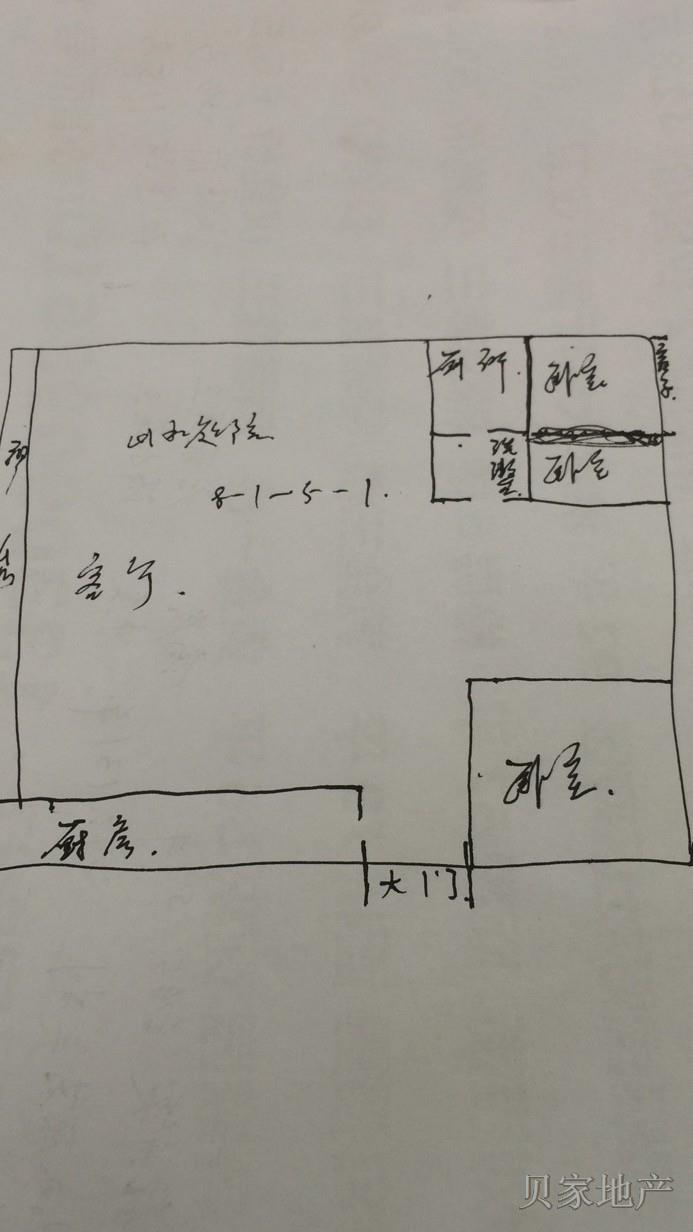 厕所.
卧室
窗子.
8-1-5-1.
洗漱室
卧室
客厅.
卧室.
厨房.
大门
贝家地产